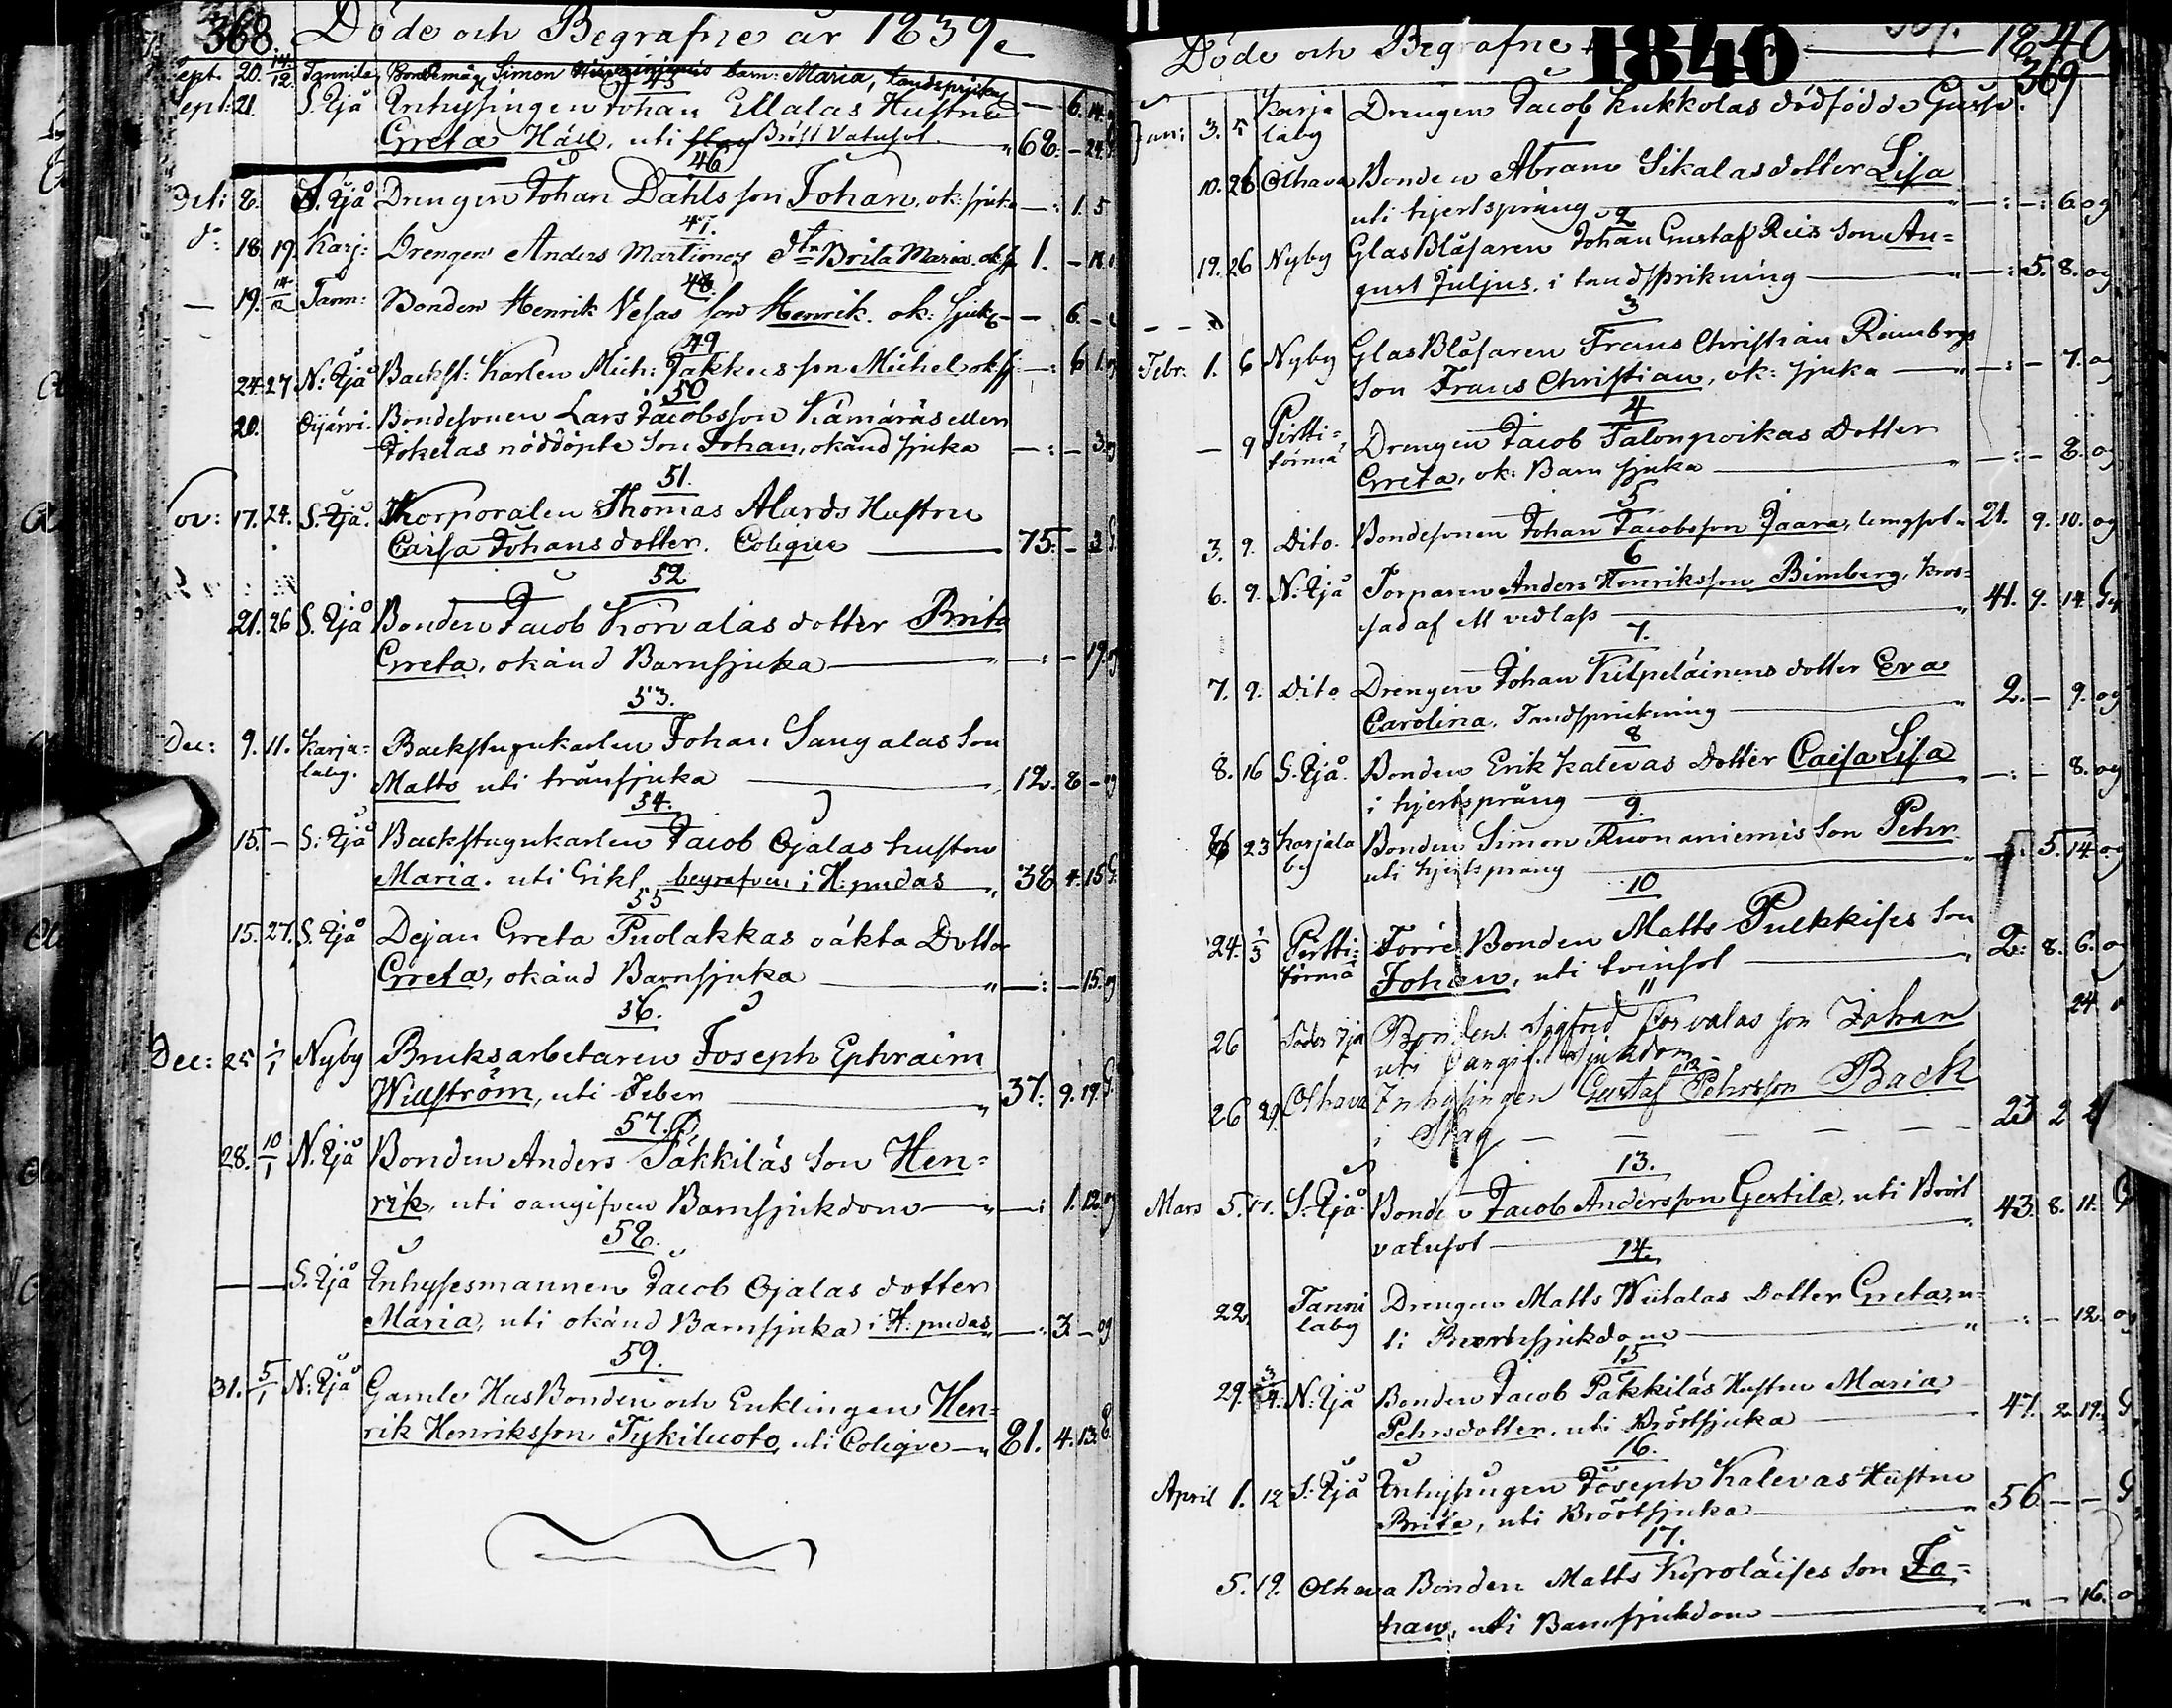 368. Döde och Begrafne år 1839
Sept. 20. 14/12. Tannila Bondemåg Simon barn: Maria, tandsprickn
6. 14.
45
Sept: 21. S. Ijå Inhysingen Johan Ellalas Hustru
Greta Häll, uti Bröst Vatusot. 68. – 24.
46
8. N. Ijå Drengen Johan Dahls son Johan, ok: sjuka — : 1. 5
47.
do 18. 19. Karj: Drengen Anders Martimos dtr Brita Maria. ok. sj. 1. –
48.
— 19. Tann: Bonden Henrik Vesas son Henrik. ok: sjuk – 6. –
49
24. 27 N: Ijå Backst: Karlen Mich: Jakkus son Michel ok sj — : 6 1.
50
20. Oijärvi. Bondesonen Lars Jacobsson Kämäräs eller
Jokelas nöddöpte Son Johan, okänd sjuka — : – 3.
51.
ov: 17. 24. S. Ijå. Korporalen Thomas Alards Hustru
Caisa Johansdotter. Colique 75. – 3
52
21. 26 S. Ijå Bonden Jacob Korvalas dotter Brita
Greta, okänd Barnsjuka — : – 19.
53.
Dec: 9. 11. Karja=
laby. Backstugukarlen Johan Sangalas Son
Matts uti trånsjuka 12. 8 –
54.
15. – S: Ijå Backstugukarlen Jacob Ojalas hustru
Maria. uti Gikt, begrafven i H: pudas 38 4. 15
55
15. 27. S. Ijå Dejan Greta Puolakkas oäkta Dotter
Greta, okänd Barnsjuka — : – 15.
56.
Dec: 25 1/1 Nyby Bruksarbetaren Joseph Ephraim
Willström, uti Feber 37. 9. 19.
57.
28. 10/1 N. Ijå Bonden Anders Päkkiläs Son Hen=
rik, uti oangifven Barnsjukdom — : 1. 12.
58.
— — S. Ijå Inhysesmannen Jacob Ojalas dotter
Maria, uti okänd Barnsjuka i H: pudas — : 3. –
59.
31. 5/1 N: Ijå Gamle HusBonden och Enklingen Hen=
rik Henriksson Tykiluoto, uti Colique 81. 4. 13.
Döde och Begrafne 1840 1840
369
Jan: 3. 5 Karja
laby Drengen Jacob Kukkolas dödfödde Gosse.
1
10. 26 Olhava Bonden Abram Sikalas dotter Lisa
uti hjertsprång — : – : 6 og
2
19. 26 Nyby GlasBlåsaren Johan Gustaf Reis Son Au=
gust Juljus, i tandsprikning — : 5. 8. og
3
Febr: 1. 6 Nyby GlasBlåsaren Frans Christian Reimbergs
Son Frans Christian, ok: sjuka — : – 7. og
4
— 9 Pirtti=
törmä Drengen Jacob Talonpoikas Dotter
Greta, ok: Barn sjuka — : – 8. og
5
3. 9. Dito. Bondesonen Johan Jacobsson Jaara, lungsot 21. 9. 10. og
6
6. 9. N: Ijå Torparen Anders Henriksson Bimberg, kros=
sad af ett vedlass 41. 9. 14.
7.
7. 9. Dito Drengen Johan Kilpeläinens dotter Eva
Carolina. Tandsprickning 2. – 9. og
8
8. 16 S. Ijå. Bonden Erik Kalevas Dotter Caisa Lisa
i hjertsprång — : – 8. og
9.
23 Karjala
by Bonden Simon Ruonaniemis Son Pehr
uti hjertsprång 5. 14 og
10
24. 1/3 Pirtti=
törmä Förre Bonden Matts Pulkkises Son
Johan, uti tvinsot 2: 8. 6. og
11
26 Söder Ijå Bonden Sigfrid Korvalas son Johan
uti oangif. sjukdom 24
12
26 29 Olhava Inhysingen Gustaf Pehrsson Back
i Styng — — — — — 23 2
13.
Mars 5. 17. S. Ijå. Bonden Jacob Andersson Gertila, uti Bröst
vatusot 43. 8. 11.
14.
22. Tanni
laby Drengen Matts Wiitalas Dotter Greta, u=
ti Barnsjukdom — : – 12. og
15
29. 3/4. N: Ijå Bonden Jacob Päkkiläs Hustru Maria
Pehrsdotter, uti Bröstsjuka 47. 2. 19.
16.
April 1. 12 S: Ijå Inhysingen Joseph Kalevas Hustru
Brita, uti Bröstsjuka 56. – –
17.
5. 19. Olhava Bonden Matts Kiproläises Son Jo=
han, uti Barnsjukdom — – 16.